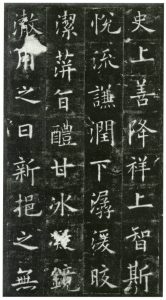 史上善降祥上智斯
悅流謙潤下潺湲皎
潔萍旨醴甘冰鏡
澈用之日新挹之無